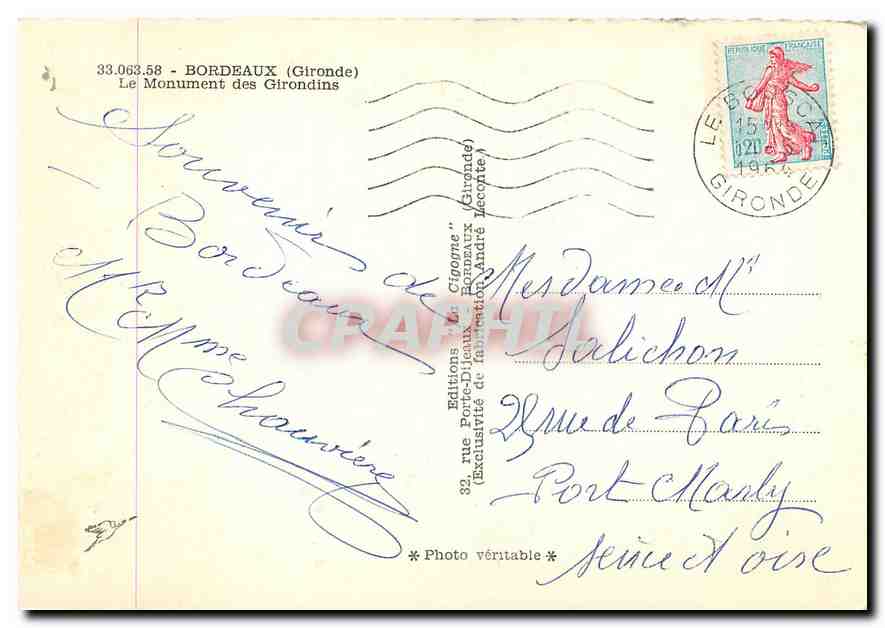 33.063.58 - BORDEAUX (Gironde)
Le Monument des Girondins
Souvenirs de
Bordeaux
Mr & Mme Chauvière
Editions "La Cigogne"
32, rue Porte-Dijeaux BORDEAUX (Gironde)
(Exclusivité de fabrication André Leconte)
* Photo véritable *
REPUBLIQUE FRANÇAISE
LE BOUSCAT
15
1964
GIRONDE
Mesdames Mr
Salichon
28 rue de Paris
Port Marly
Seine et Oise
CPAPHIL